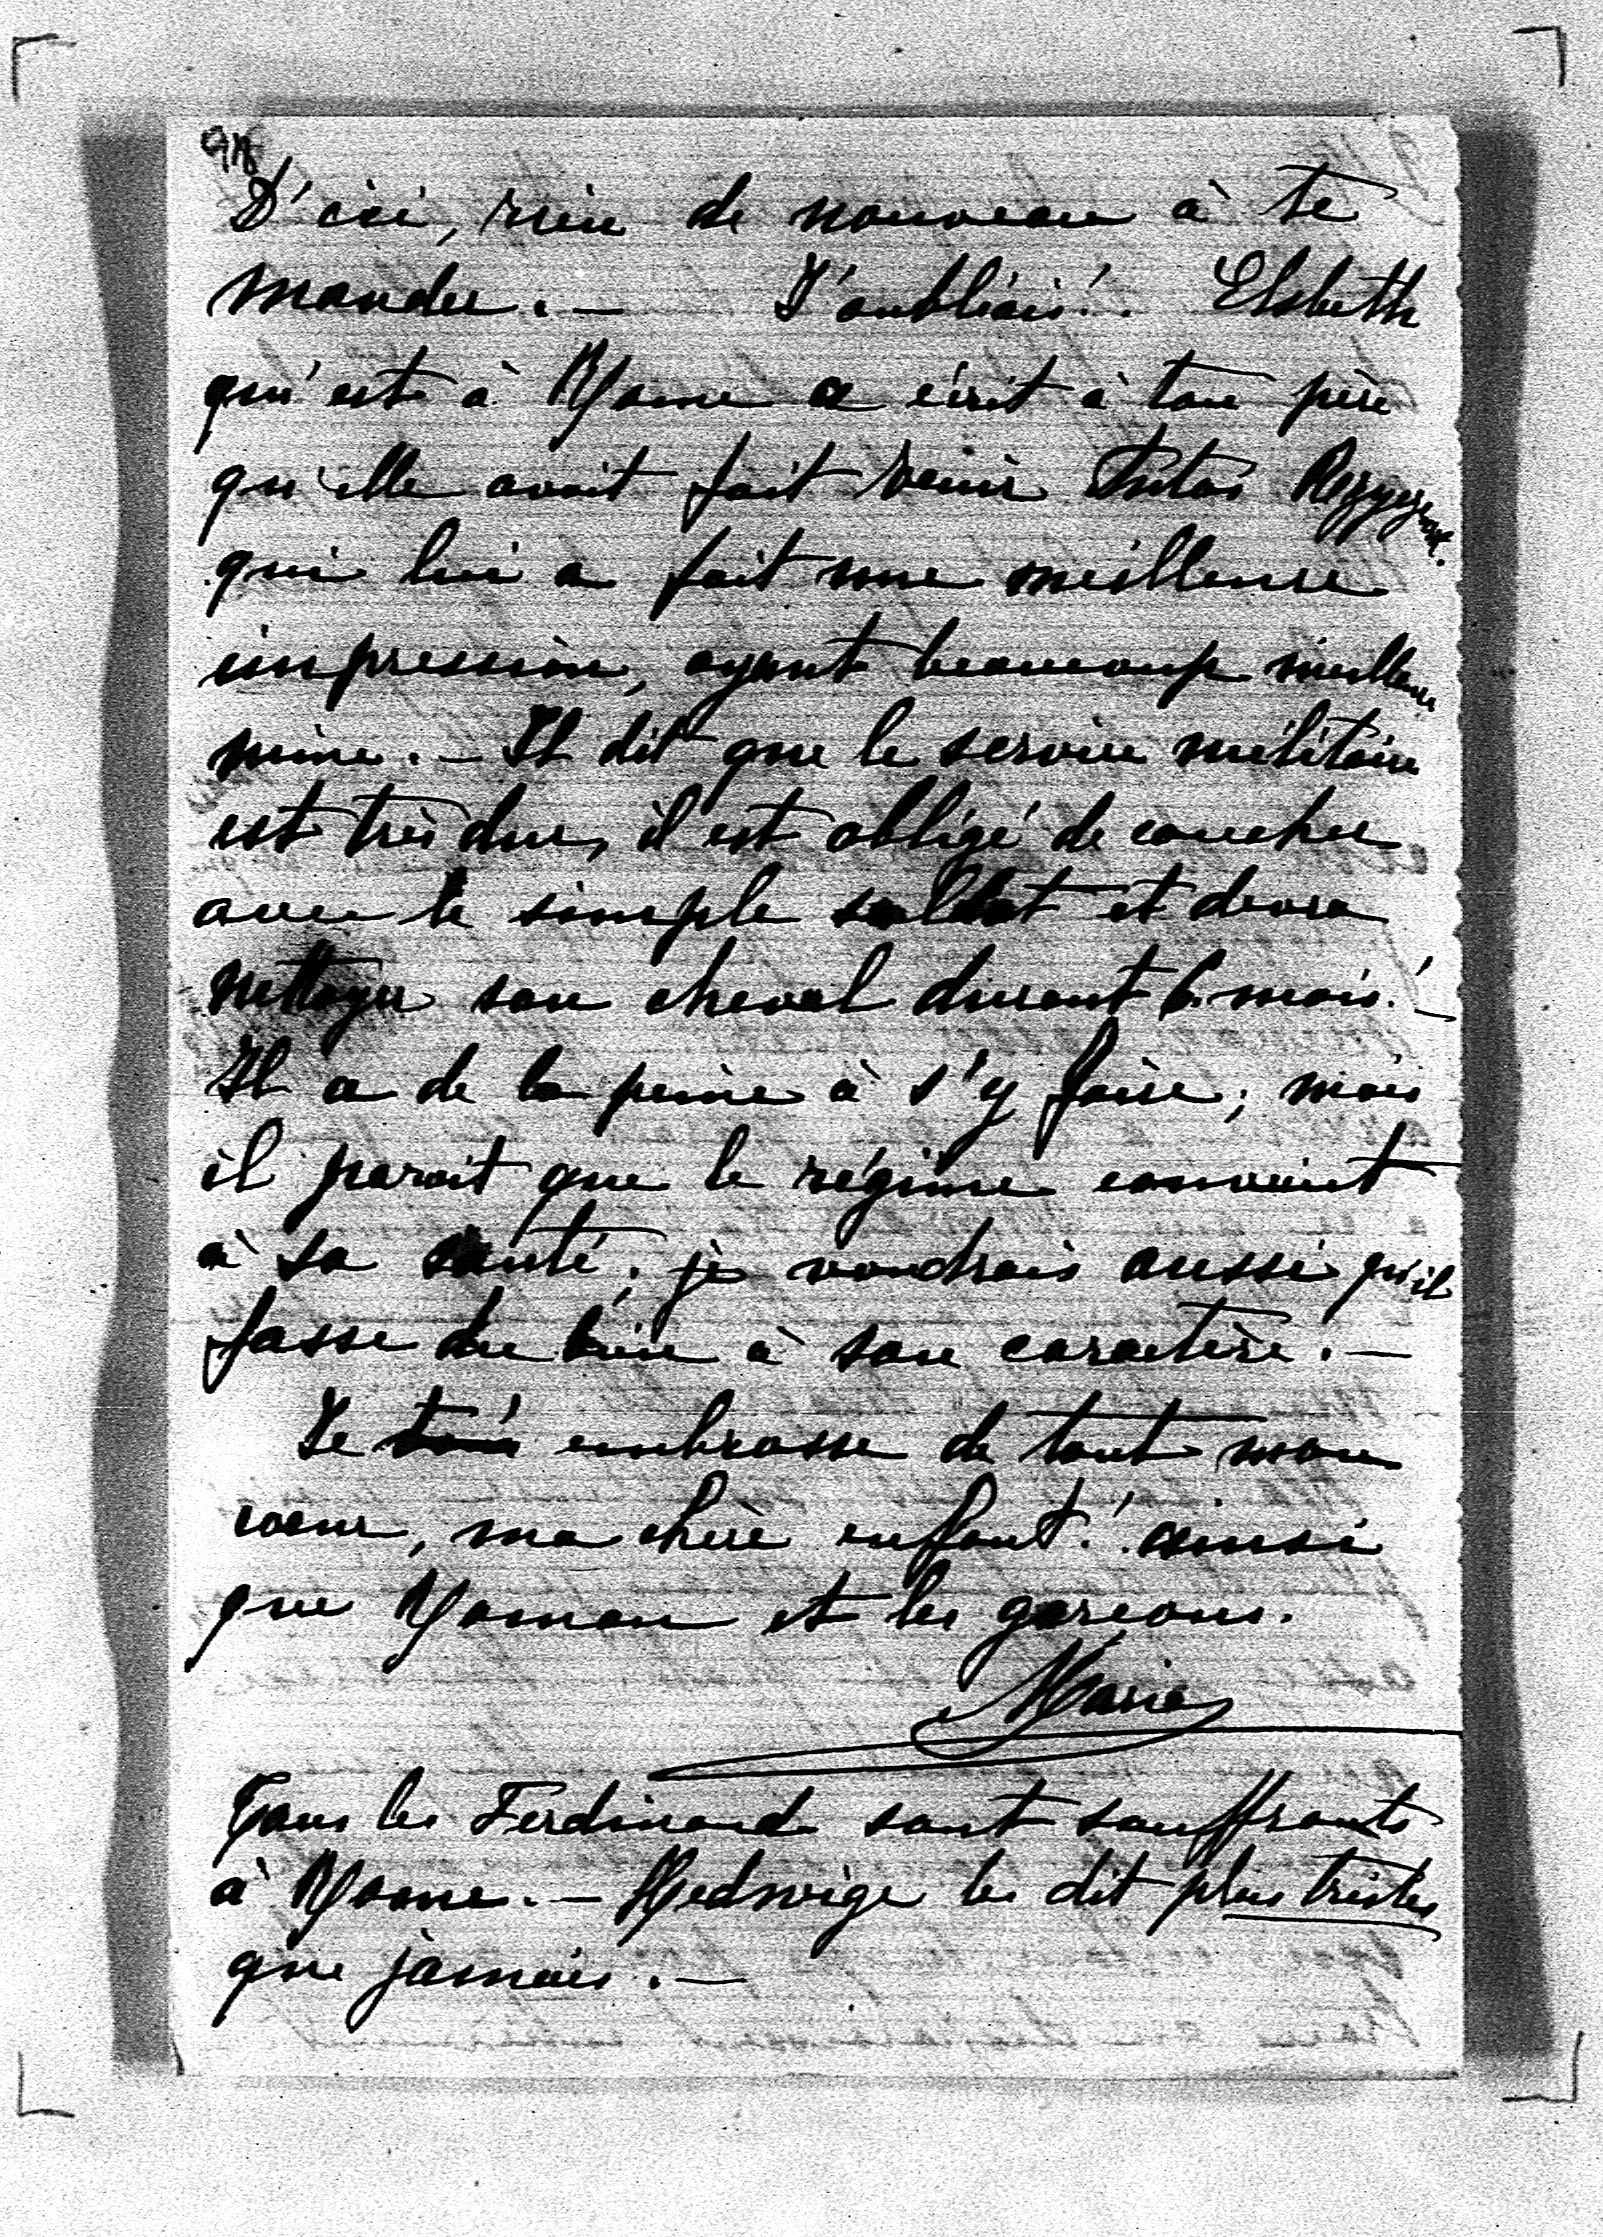 D'ici, rien de nouveau à te
mander. — J'oubliais! Elsbeth
qui est à Rome a écrit à ton père
qu'elle avait fait venir
qui lui a fait une meilleure
impression, ayant beaucoup meilleure
mine. — Il dit que le service militaire
est très dur, il est obligé de coucher
avec le simple soldat et devra
nettoyer son cheval durant 6 mois! —
Il a de la peine à s'y faire; mais
il parait que le régime convient
à sa santé; je voudrais aussi qu'il
fasse du bien à son caractère. —
Je embrasse de tout mon
coeur, ma chère enfant! ainsi
que et les garcons.
Marie
Tous les Ferdinand sont souffrants
à Rome. — Hedwige les dit plus tristes
que jamais. —